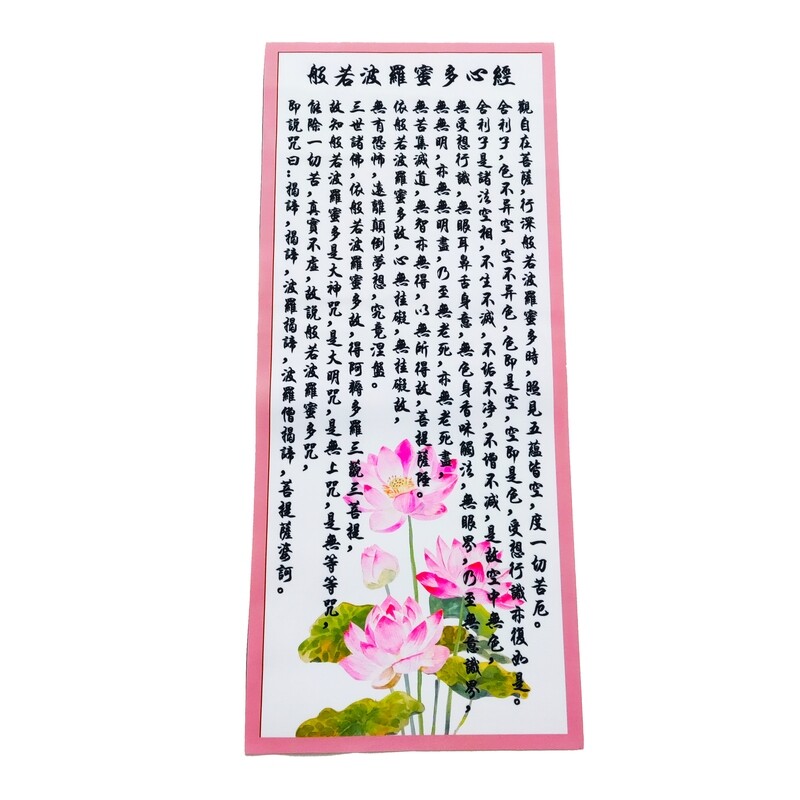 般若波羅蜜多心經
觀自在菩薩,行深般若波羅蜜多時,照見五蘊皆空,度一切苦厄。
舍利子,色不异空,空不异色,色即是空,空即是色,受想行識亦復如是。
舍利子是諸法空相,不生不滅,不垢不净,不增不减,是故空中無色,
無受想行識,無眼耳鼻舌身意,無色身香味觸法,無眼界,乃至無意識界,
無無明,亦無無明盡,乃至無老死,亦無老死盡,
無苦集滅道,無智亦無得,以無所得故,菩提薩陲。
依般若波羅蜜多故,心無挂礙,無挂礙故,
無有恐怖,遠離顛倒夢想,究竟涅盤。
三世諸佛,依般若波羅蜜多故,得阿耨多羅三藐三菩提,
故知般若波羅蜜多是大神咒,是大明咒,是無上咒,是無等等咒,
能除一切苦,真實不虛,故說般若波羅蜜多咒,
即說咒曰:揭諦,揭諦,波羅揭諦,波羅僧揭諦,菩提薩婆訶。